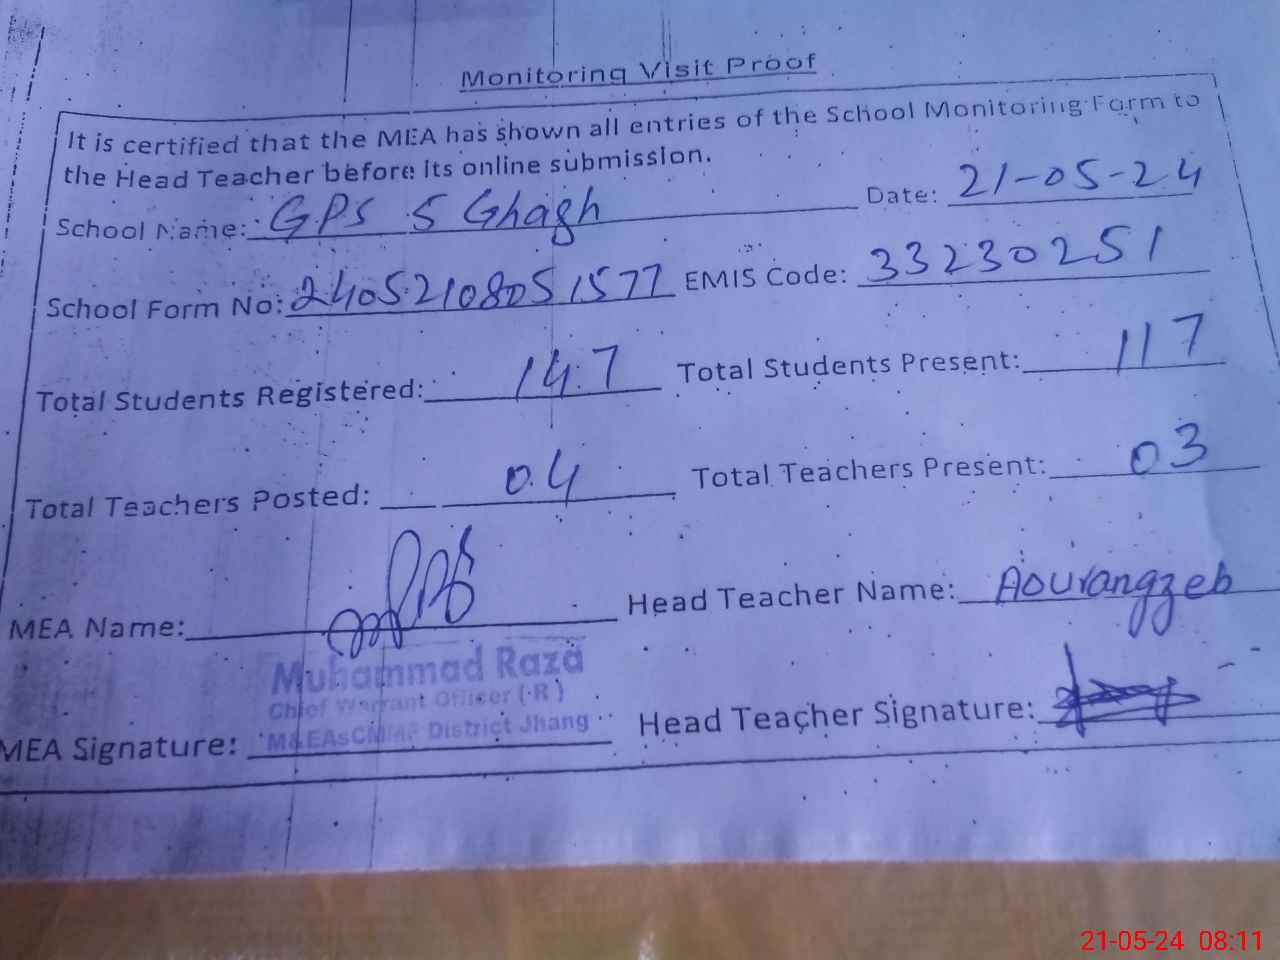 Monitoring Visit Proof
It is certified that the MEA has shown all entries of the School Monitoring Form to
the Head Teacher before its online submission.
School Name: GPS 5 Ghagh Date: 21-05-24
School Form No: 24052108051577 EMIS Code: 33230251
Total Students Registered: 147 Total Students Present: 117
Total Teachers Posted: 04 Total Teachers Present: 03
MEA Name: Head Teacher Name: Aourangzeb
Muhammad Raza
Chief Warrant Officer (R)
MEA Signature: M&EAsCMMF District Jhang Head Teacher Signature:
21-05-24 08:11